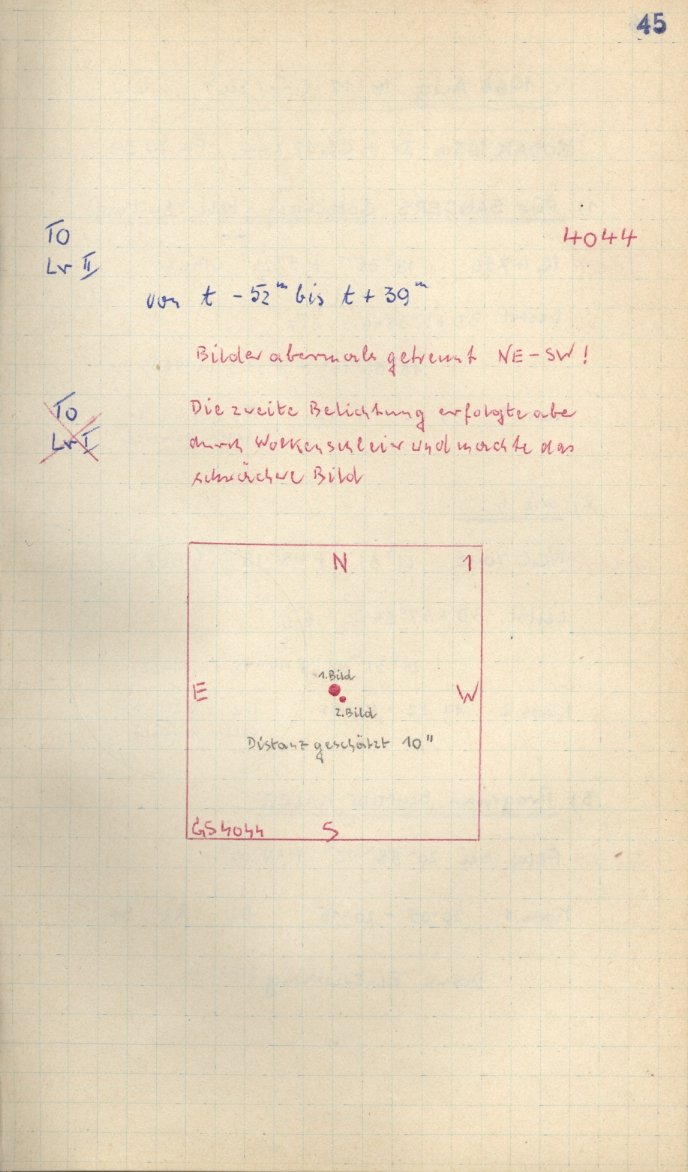 45
TO
4044
Lv II
von t - 52ᵐ bis t + 39ᵐ
Bilder abermals getrennt NE - SW !
TO
Lv I
Die zweite Belichtung erfolgte aber
durch Wolkenschleier und machte das
schwächere Bild
N 1
1. Bild
E W
2. Bild
Distanz geschätzt 10"
GS 4044 S